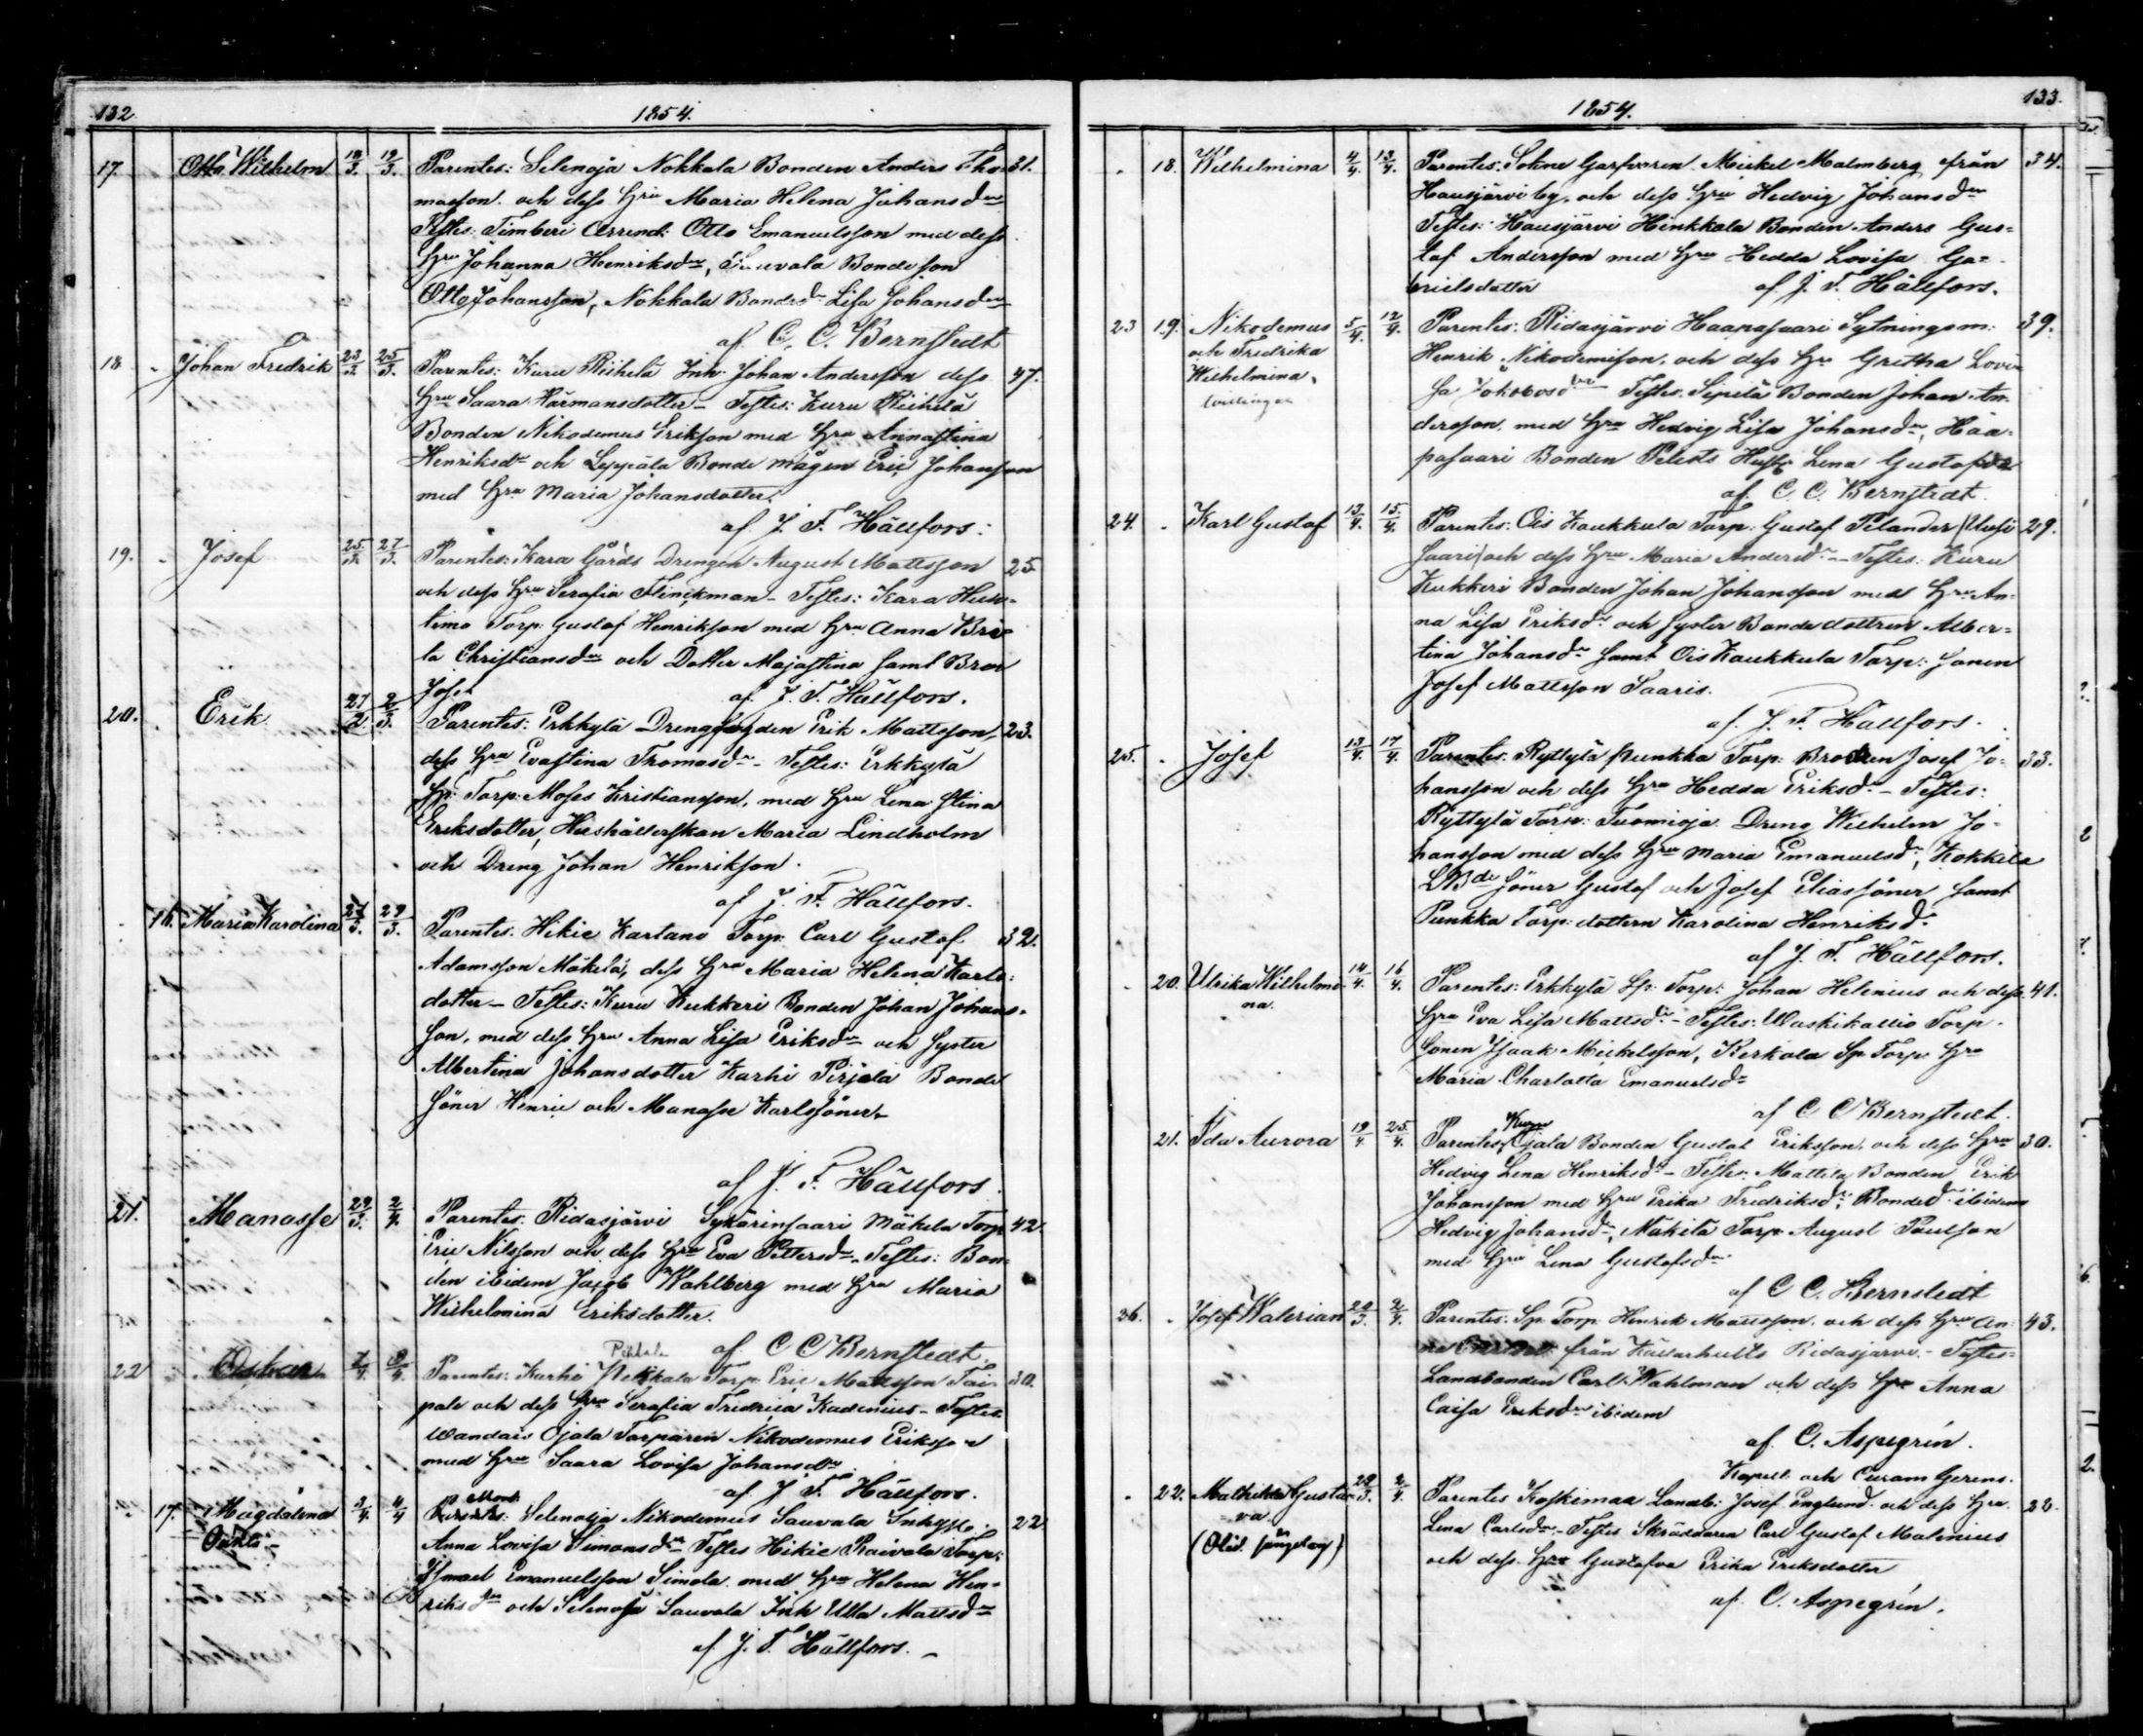 132
1854.
17. Otto Wilhelm 18/3. 19/3. Parentes: Selenoja Nokkala Bonden Anders Tho- 31.
masson och dess Hru Maria Helena Johansdr
Testes: Timberi Arrend: Otto Emanuelsson med dess
Hru Johanna Henriksdr, Sauvala Bondeson
Otto Johansson, Nokkala Bondedr Lisa Johansdr
af C. C. Bernstedt
18 Johan Fredrik 23/3 25/3. Parentes: Kuru Riihelä Inh: Johan Andersson dess 47.
Hru Saara Härmansdotter - Testes: Kuru Riihelä
Bonden Nikodemus Erikson med Hru Annastina
Henriksdr och Leppälä Bonde mågen Eric Johansson
med Hru Maria Johansdotter.
af J. F. Hällfors:
19. Josef 25/3. 27/3. Parentes: Kara Gårds Drengen August Mattsson 25
och dess Hru Serafia Flinckman - Testes: Kara Huh-
timo Torp: Gustaf Henrikson med Hru Anna Bri-
ta Christiansdr och Dotter Majastina samt Bror
Josef
af J. F. Hällfors.
20. Erik 27/2 2/3. Parentes: Erkkylä Drengfogden Erik Mattsson, 23.
dess Hru Evastina Thomasdr - Testes: Erkkylä
Sp: Torp: Moses Kristiansson, med Hru Lena Stina
Eriksdotter, Hushållerskan Maria Lindholm
och Dreng Johan Henrikson.
af J. F. Hällfors.
16. Maria Karolina 27/3. 29/3. Parentes. Hikie Kartano Torp: Carl Gustaf 32.
Adamsson Mäkelä, dess Hru Maria Helena Karls-
dotter - Testes: Kuru Kukkeri Bonden Johan Johans-
son, med dess Hru Anna Lisa Eriksdr och Syster
Albertina Johansdotter Karhi Pirjola Bonde
söner Henric och Manasse Karlssöner
af J. F. Hällfors.
21. Manasse 29/3. 2/4. Parentes. Ridasjärvi Sykärinsaari Mäkela Torp 42.
Eric Nilsson och dess Hru Eva Pettersdr Testes: Bon-
den ibidem Jacob Wahlberg med Hru Maria
Wilhelmina Eriksdotter.
af C C Bernstedt
22 Oskar Parentes: Karhi Pekkala Torp Eric Mattsson Tai- 30.
pale och dess Hru Serafia Fredrica Kadenius - Testes
Wandais Ojala Torparen Nikodemus Eriksson
med Hru Saara Lovisa Johansdr
af J. F. Hällfors.
17. Magdalena 3/4 4/4 Selenoja Nikodemus Sauvala Inhyse 22
Oäkta -
Anna Lovisa Simonsdr Testes Hikie Raivola Torp:
Ismael Emanuelsson Simola med Hru Helena Hen-
riksdr och Selenoja Sauvala Inh Ulla Mattsdr
af J. F. Hällfors. -
1854.
133.
18. Wilhelmina 4/4. 13/4. Parentes: Sokne Garfvaren Mickel Malmberg från 34.
Hausjärvi by, och dess Hru Hedvig Johansdr
Testes: Hausjärvi Hinkkala Bonden Anders Gus-
taf Andersson med Hru Hedda Lovisa Ga-
brielsdotter af J. F. Hällfors.
23 19. Nikodemus 5/4. 12/4. Parentes: Ridasjärvi Haapasaari Sytningsm: 39.
och Fredrika
Wilhelmina,
tvillingar
Henrik Nikodemisson, och dess Hr Gretha Lovi-
sa Jakobsdr Testes. Sipilä Bonden Johan An-
dersson, med Hru Hedvig Lisa Johansdr, Haa-
pasaari Bonden Hustr Lena Gustafsdr
af C. C. Bernstedt.
24. Karl Gustaf 13/4. 15/4. Parentes: Ois Kaukkula Torp: Gustaf Pelander (Uusi 29.
saari) och dess Hru Maria Andersdr - Testes: Kuru
Kukkeri Bonden Johan Johansson med Hru An-
na Lisa Eriksdr och Syster Bonde dottren Alber-
tina Johansdr samt Ois Kaukkula Torp: Sonen
Josef Mattsson Saaris.
af J. F. Hällfors.
25. Josef 13/4. 17/4. Parentes. Ryttylä Punkka Torp: Brodren Josef Jo- 33.
hansson och dess Hru Hedda Eriksdr - Testes:
Ryttylä Torp: Tuomioja Dreng Wilhelm Jo-
hansson med dess Hru Maria Emanuelsdr, Kokkila
LBde Söner Gustaf och Josef Eliassöner samt
Punkka Torp: dottern Karolina Henriksdr
af J. F. Hällfors.
20. Ulrika Wilhelmi- 14/4. 16/4. Parentes: Erkkylä Sp: Torp: Johan Helenius och dess 41.
na.
Hru Eva Lisa Mattsdr - Testes: Waskikallio Torp.
Sonen Isaak Mickelsson, Kerkola Sp Torp Hru
Maria Charlotta Emanuelsdr
af C C Bernstedt.
21. Ida Aurora 19/4 25/4. Parentes, Kuru Ojala Bonden Gustaf Eriksson, och dess Hru 30.
Hedvig Lena Henriksdr - Testes: Mattila Bonden Erik
Johansson med Hru Erika Fredriksdr, Bondedr ibidem
Hedvig Johansdr, Mäkilä Torp August Paulson
med Hru Lena Gustafsdr
af C C. Bernstedt
Josef Walerian Parentes. Sp Torp. Henrik Mattsson, och dess Hru An- 43.
na från Ridasjärvi. - Testes-
Landbonden Carl Wahlman och dess Hru Anna
Caisa Eriksdr ibidem
af C. Aspegrén.
Kapell. och Curam Gerens.
22. Mathilda Gusta- 29/3. 2/4. Parentes Koskimaa Landb: Josef Englund och dess Hru. 22.
va
Lena Carlsdr - Testes Skräddaren Carl Gustaf Malinius
och dess Hru Gustafva Erika Eriksdotter
af C. Aspegrén.